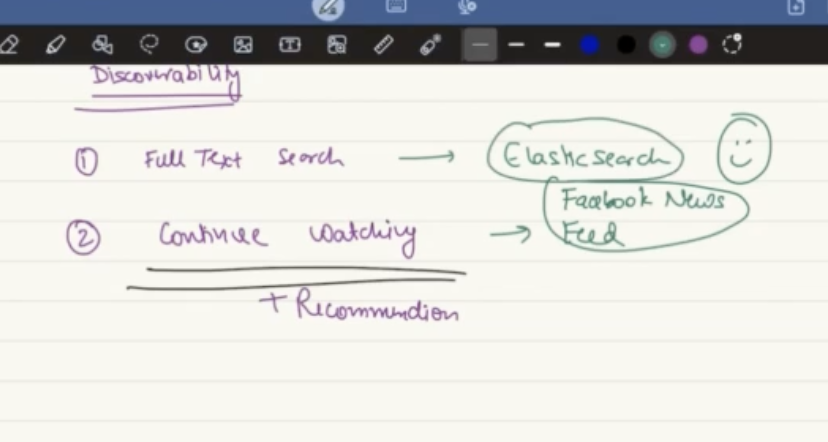 Discoverability
① Full Text Search → Elasticsearch
② Continue Watching → Facebook News Feed
+ Recommendion